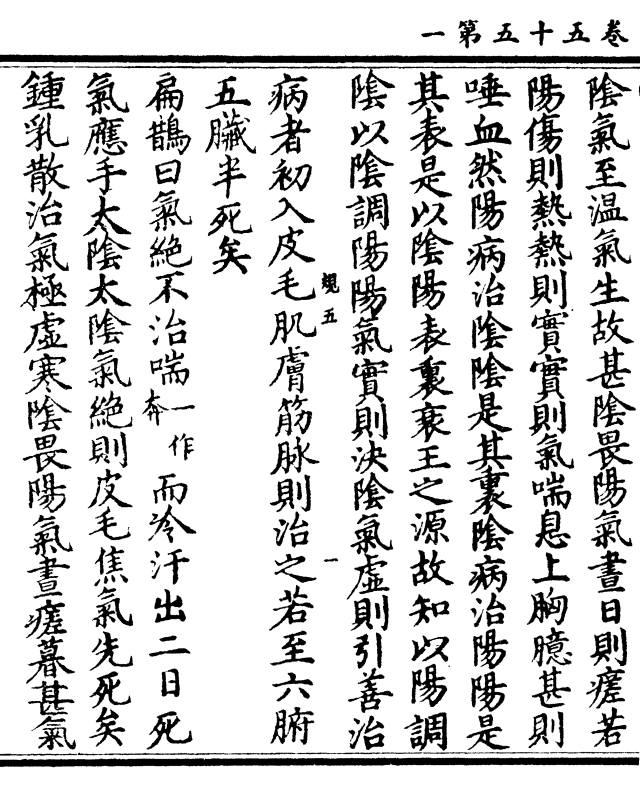 卷五十五第一
陰氣至溫氣生故甚陰畏陽氣晝日則瘥若
陽傷則熱熱則實實則氣喘息上胸臆甚則
唾血然陽病治陰陰是其裏陰病治陽陽是
其表是以陰陽表裏衰王之源故知以陽調
陰以陰調陽陽氣實則決陰氣虛則引善治
病者初入皮毛肌膚筋脉則治之若至六腑
五臟半死矣
扁鵲曰氣絕不治喘一作奔而冷汗出二日死
氣應手太陰太陰氣絕則皮毛焦氣先死矣
鍾乳散治氣極虛寒陰畏陽氣晝瘥暮甚氣